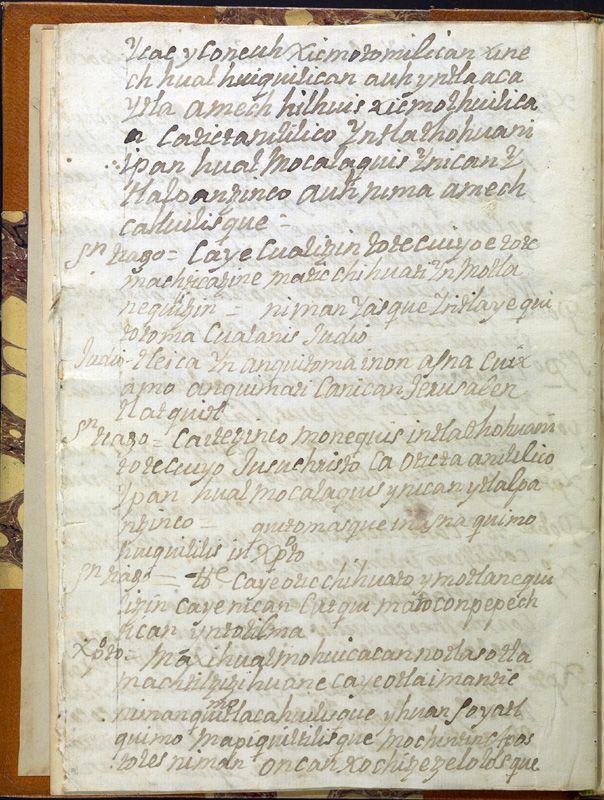 ytac y coneuh xicmotomilican xine
ch hual huiquilican auh yntla aca
ytla amech hilhuis xicmolhuilica
a ca tictantilico yntlathohuani
ypan hual mocalaquis ynican y
tlalpantzinco auh nima amech
cahuilisque =
Sn tiago = Caye Cualtzin totecuiyo e totc
machticatzine matic chihuati yn motla
nequiltzin = niman yasque yntlaye qui
totoma Cuatanis Judio
Judio - tleica yn anquitoma inon asna Cuix
amo anquimati Canican Jerusalen
tlatquitl
Sn tiago = Catetzinco monequis intlathohuani
totecuiyo Jusuchristo Ca oticta antilico
ypan hual mocalaquis ynican ytlalpa
ntzinco = quitomasque in asna quimo
huiquililis in Xpto
Sn tiago = Caye otic chihuato ymotlanequi
litzin Caye nican Catqui matoconpepech
tican yntotilma
Xpto - Ma xihualmohuicacan notlasotla
machtiltzitzihuane Caye otlaimantie
niman quitlacahuilisque yhuan soyatl
quimo mapiquitilisque mochintin Apos
toles niman oncan xochitzetzelolosque